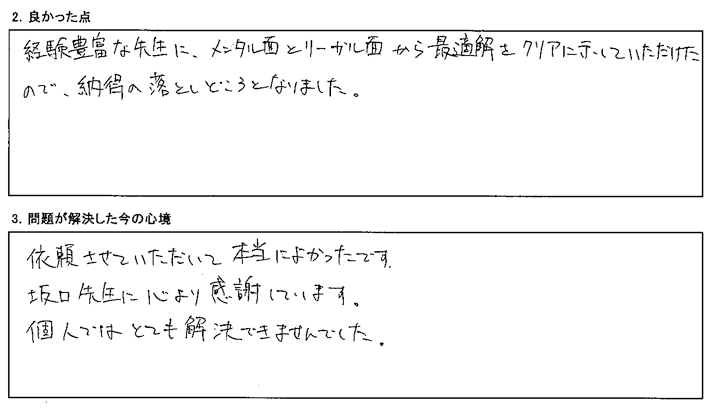 2. 良かった点
経験豊富な先生に、メンタル面とリーガル面から最適解をクリアに示していただけた
ので、納得の落としどころとなりました。
3. 問題が解決した今の心境
依頼させていただいて本当によかったです。
坂口先生に心より感謝しています。
個人ではとても解決できませんでした。